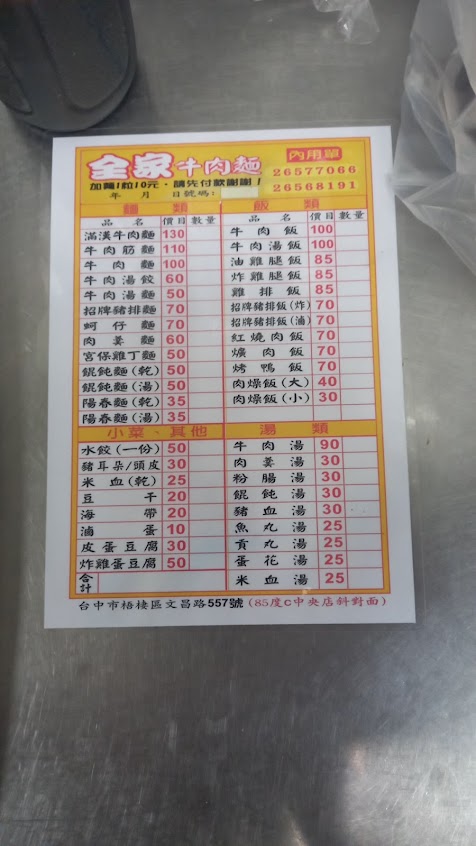 全家牛肉麵 內用單
26577066
加麵1粒10元·請先付款謝謝!
26568191
年 月 日號碼:
麵類
品名 價目 數量
滿漢牛肉麵 130
牛肉筋麵 110
牛肉麵 100
牛肉湯餃 60
牛肉湯麵 50
招牌豬排麵 70
蚵仔麵 70
肉羹麵 60
宮保雞丁麵 50
餛飩麵(乾) 50
餛飩麵(湯) 50
陽春麵(乾) 35
陽春麵(湯) 35
飯類
品名 價目 數量
牛肉飯 100
牛肉湯飯 100
油雞腿飯 85
炸雞腿飯 85
雞排飯 85
招牌豬排飯(炸) 70
招牌豬排飯(滷) 70
紅燒肉飯 70
爌肉飯 70
烤鴨飯 70
肉燥飯(大) 40
肉燥飯(小) 30
小菜、其他
水餃(一份) 50
豬耳朵/頭皮 30
米血(乾) 25
豆干 20
海帶 20
滷蛋 10
皮蛋豆腐 30
炸雞蛋豆腐 50
合計
湯類
牛肉湯 90
肉羹湯 30
粉腸湯 30
餛飩湯 30
豬血湯 30
魚丸湯 25
貢丸湯 25
蛋花湯 25
米血湯 25
台中市梧棲區文昌路557號(85度C中央店斜對面)